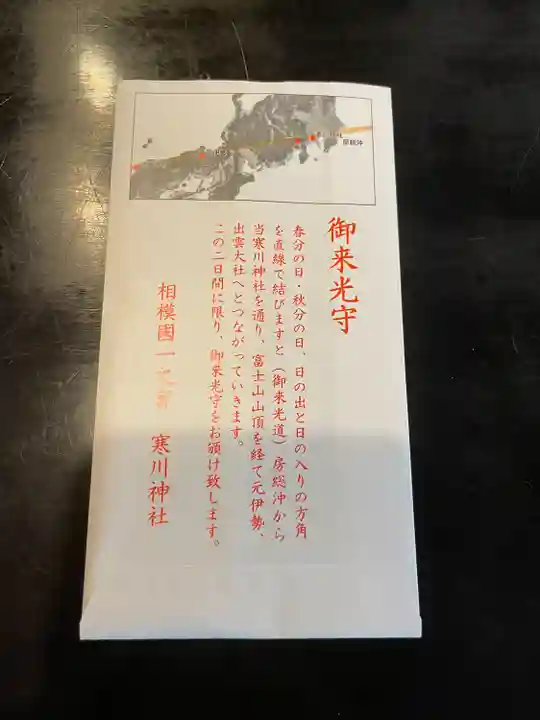 御来光守
春分の日・秋分の日、日の出と日の入りの方角
を直線で結びますと（御来光道）房総沖から
当寒川神社を通り、富士山山頂を経て元伊勢、
出雲大社へとつながっていきます。
この二日間に限り、御来光守をお頒け致します。
相模國一之宮 寒川神社
房総沖